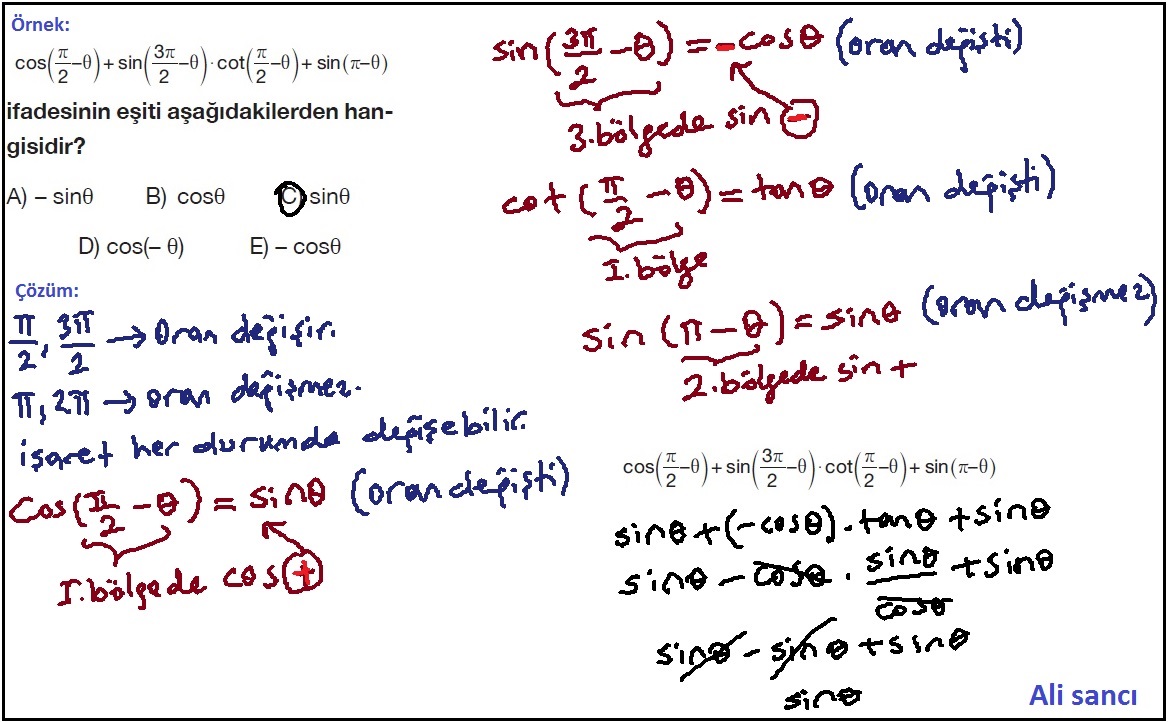 Örnek:
cos(π/2−θ)+sin(3π/2−θ)·cot(π/2−θ)+sin(π−θ)
ifadesinin eşiti aşağıdakilerden han-
gisidir?
A) – sinθ B) cosθ C) sinθ
D) cos(– θ) E) – cosθ
Çözüm:
π/2, 3π/2 → Oran değişir.
π, 2π → oran değişmez.
işaret her durumda değişebilir.
Cos(π/2 − θ) = sinθ (oran değişti)
I.bölgede cos +
sin(3π/2 − θ) = −cosθ (oran değişti)
3.bölgede sin −
cot(π/2 − θ) = tanθ (oran değişti)
I.bölge
sin (π − θ) = sinθ (oran değişmez)
2.bölgede sin +
cos(π/2−θ)+sin(3π/2−θ)·cot(π/2−θ)+sin(π−θ)
sinθ+(−cosθ).tanθ+sinθ
sinθ − cosθ . sinθ/cosθ + sinθ
sinθ − sinθ + sinθ
sinθ
Ali sancı